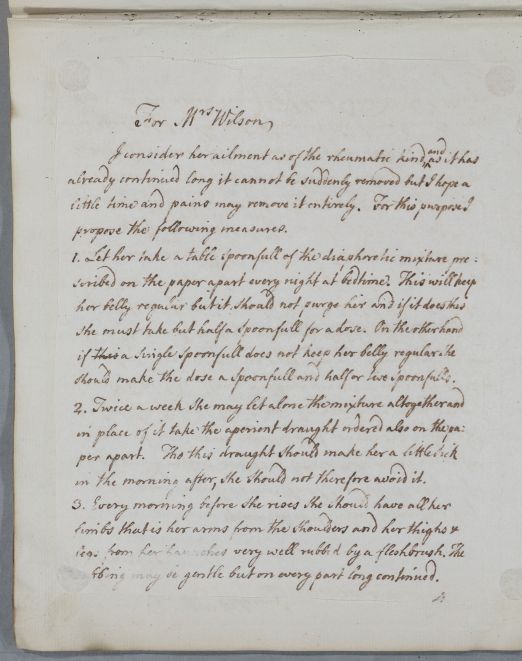 For Mrs Wilson,
I consider her ailment as of the rheumatic kind and as it has
already continued long it cannot be suddenly removed but I hope a
little time and pains may remove it entirely. For this purpose I
propose the following measures.
1. Let her take a table spoonfull of the diaphoretic mixture pre:
scribed on the paper apart every night at bedtime. This will keep
her belly regular but it should not purge her and if it does this
she must take but half a spoonfull for a dose. On the other hand
if this a single spoonfull does not keep her belly regular she
should make the dose a spoonfull and half or two spoonfulls.
2. Twice a week she may let alone the mixture altogether and
in place of it take the aperient draught ordered also on the pa:
per apart. Tho this draught should make her a little sick
in the morning after, she should not therefore avoid it.
3. Every morning before she rises she should have all her
limbs that is her arms from the shoulders and her thighs &
legs from her haunches very well rubbd by a fleshbrush. The
rubbing may be gentle but on every part long continued.
4.